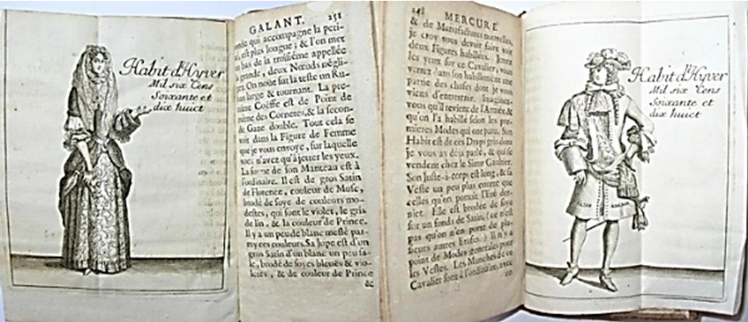 Habit d'Hyver
Mil six Cens
Soixante et
dix huict
GALANT. 251
qui accompagne la peti-
est plus longue ; & l'on met
bas de la troiſiéme appellée
grande, deux Nœuds négli-
On noüe ſur la teſte un Ru-
large & tournant. La pre-
Coëffe eſt de Point de
des Cornetes, & la ſecon-
de Gaze double. Tout cela ſe
voit dans la Figure de Femme
que je vous envoye, ſur laquelle
vous n'avez qu'à jetter les yeux.
La forme de ſon Manteau eſt à
l'ordinaire. Il eſt de gros Satin
de Florence, couleur de Muſc,
brodé de ſoye de couleurs mo-
deſtes, qui ſont le violet, le gris
de lin, & la couleur de Prince.
Il y a un peu de blanc meſlé par-
my ces couleurs. Sa Jupe eſt d'un
gros Satin d'un blanc un peu ſa-
le, brodé de ſoyes bleuës & vio-
letes, & de couleur de Prince
&
248 MERCURE
& de Manufactures nouvelles,
je croy vous devoir faire voir
deux Figures habillées. Jettez
les yeux ſur ce Cavalier, vous
verrez dans ſon habillement une
partie des choſes dont je vous
viens d'entretenir. Imaginez-
vous qu'il revient de l'Armée, &
qu'on l'a habillé ſelon les pre-
mieres Modes qui ont paru. Son
Habit eſt de ces Draps gris dont
je vous ay déja parlé, & qui ſe
vendent chez le Sieur Gaultier.
Son Juſte-à-corps eſt long, & ſa
Veſte un peu plus courte que
celles qu'on portoit l'Eſté der-
nier. Elle eſt brodée de ſoye
ſur un fonds de Satin, (ce n'eſt
pas qu'on n'en porte de plu-
ſieurs autres Etofes.) Il n'y a
point de Modes generales pour
les Veſtes. Les Manches de ce
Cavalier ſont à l'ordinaire, avec
Habit d'Hyver
Mil six Cens
Soixante et
dix huict